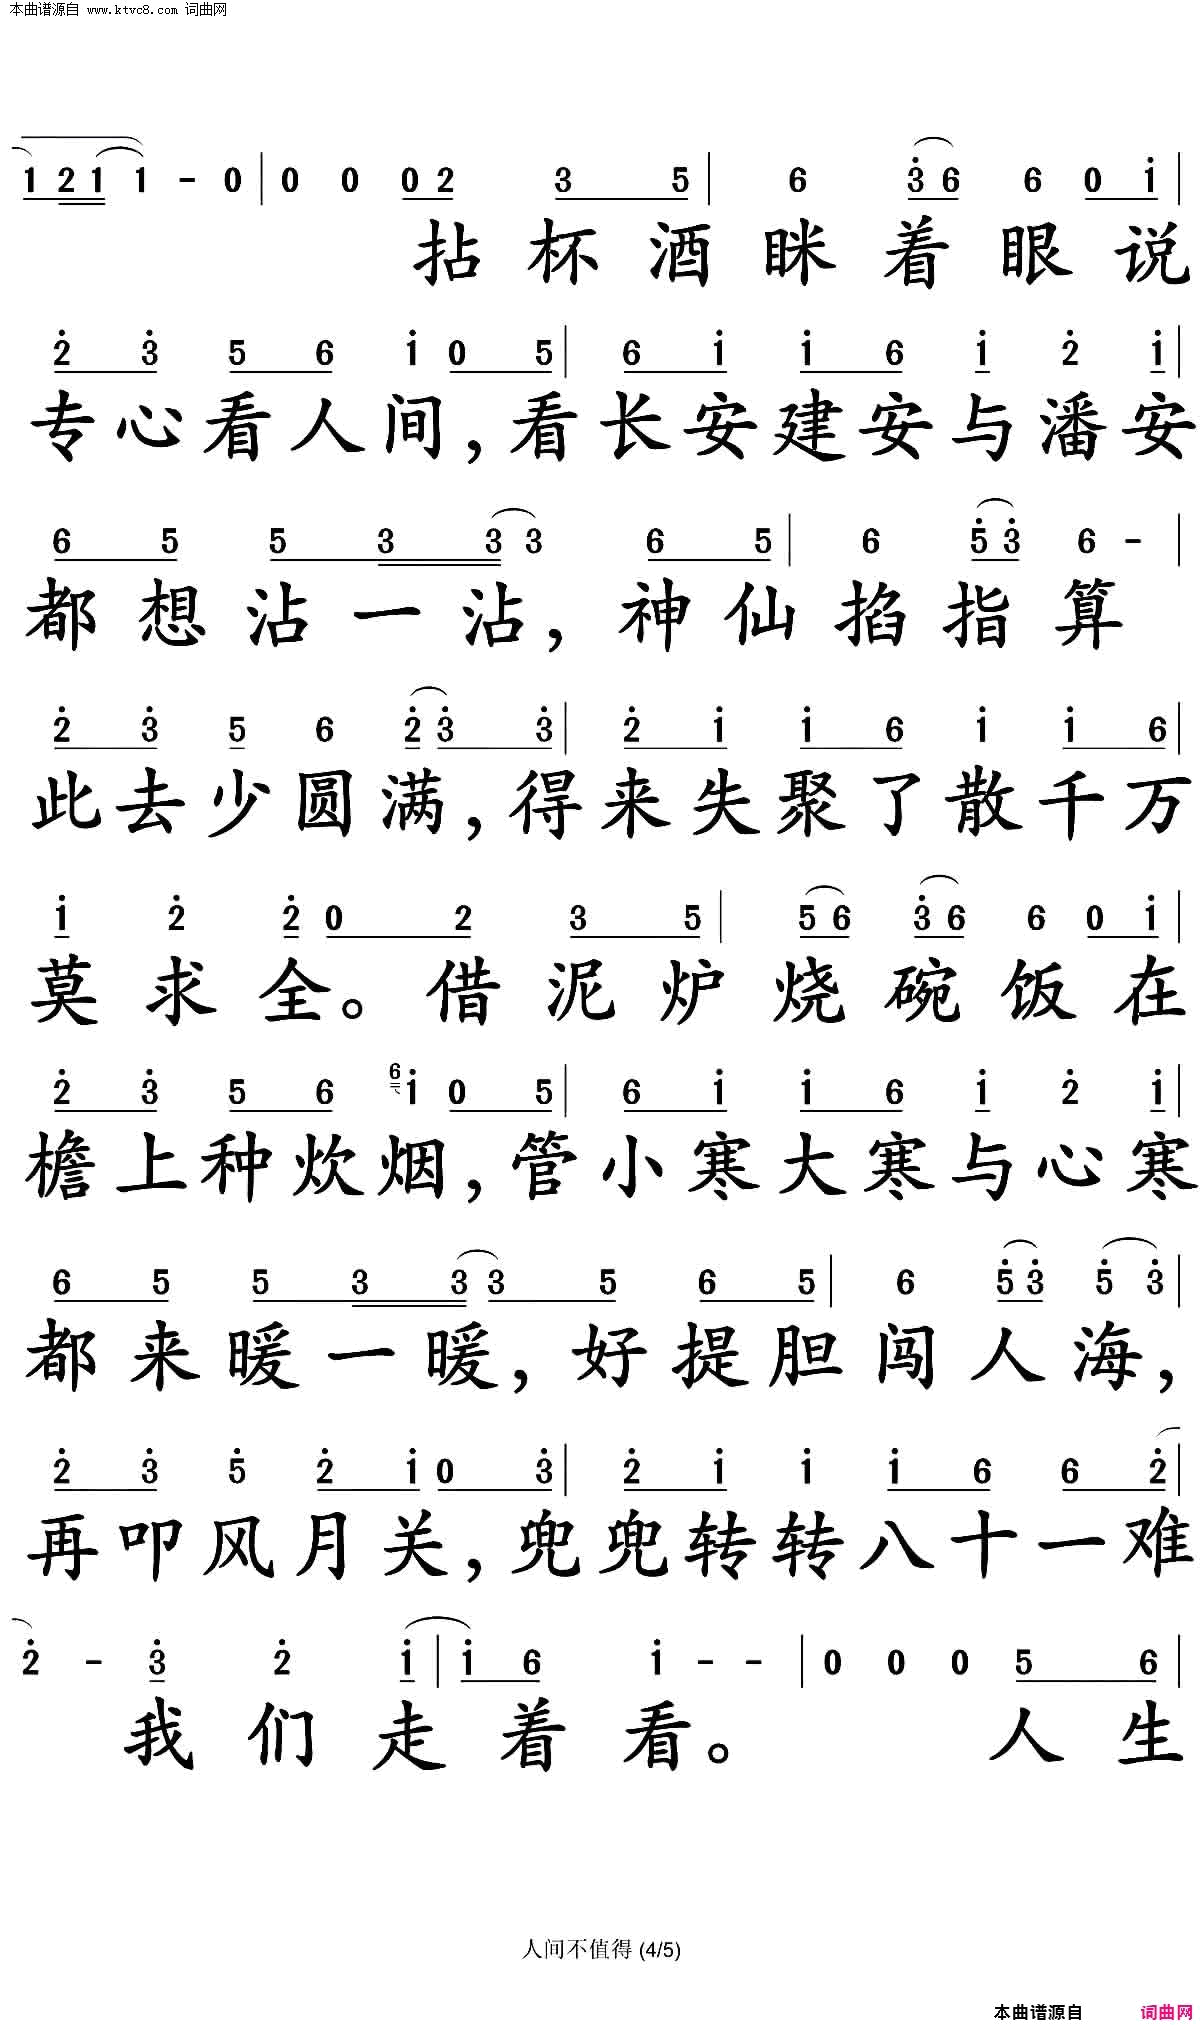 本曲谱源自 www.ktvc8.com 词曲网
1 2 1 1 - 0 | 0 0 0 2 3 5 | 6 3̇ 6 6 0 1̇ |
拈杯酒眯着眼说
2̇ 3̇ 5 6 1̇ 0 5 | 6 1̇ 1̇ 6 1̇ 2̇ 1̇ |
专心看人间，看长安建安与潘安
6 5 5 3 3 3 6 5 | 6 5̇ 3̇ 6 - |
都想沾一沾，神仙掐指算
2̇ 3̇ 5 6 2̇ 3̇ 3̇ | 2̇ 1̇ 1̇ 6 1̇ 1̇ 6 |
此去少圆满，得来失聚了散千万
1̇ 2̇ 2̇ 0 2 3 5 | 5 6 3̇ 6 6 0 1̇ |
莫求全。借泥炉烧碗饭在
2̇ 3̇ 5 6 6 1̇ 0 5 | 6 1̇ 1̇ 6 1̇ 2̇ 1̇ |
檐上种炊烟，管小寒大寒与心寒
6 5 5 3 3 3 5 6 5 | 6 5̇ 3̇ 5̇ 3̇ |
都来暖一暖，好提胆闯人海，
2̇ 3̇ 5̇ 2̇ 1̇ 0 3̇ | 2̇ 1̇ 1̇ 1̇ 6 6 2̇ |
再叩风月关，兜兜转转八十一难
2̇ - 3̇ 2̇ 1̇ | 1̇ 6 1̇ - - | 0 0 0 5 6 |
我们走着看。人生
人间不值得 (4/5)
本曲谱源自 词曲网